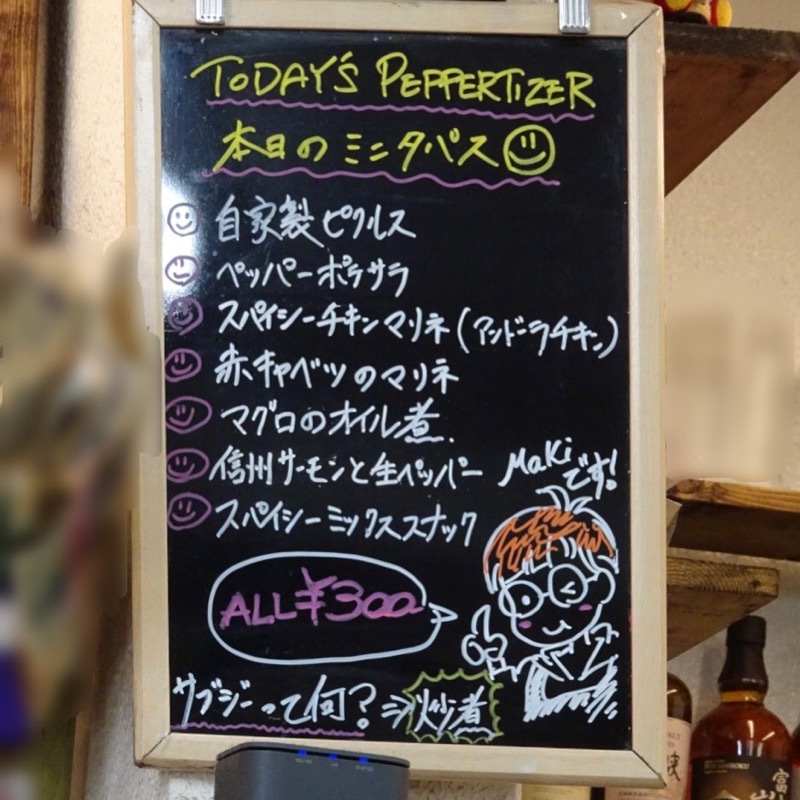 TODAY'S PEPPERTIZER
本日のミニタパス
自家製ピクルス
ペッパーポテサラ
スパイシーチキンマリネ(アンドーラチキン)
赤キャベツのマリネ
マグロのオイル煮
信州サーモンと生ペッパー
スパイシーミックススナック
Makiです!
ALL¥300
サブジーって何?⇒炒煮